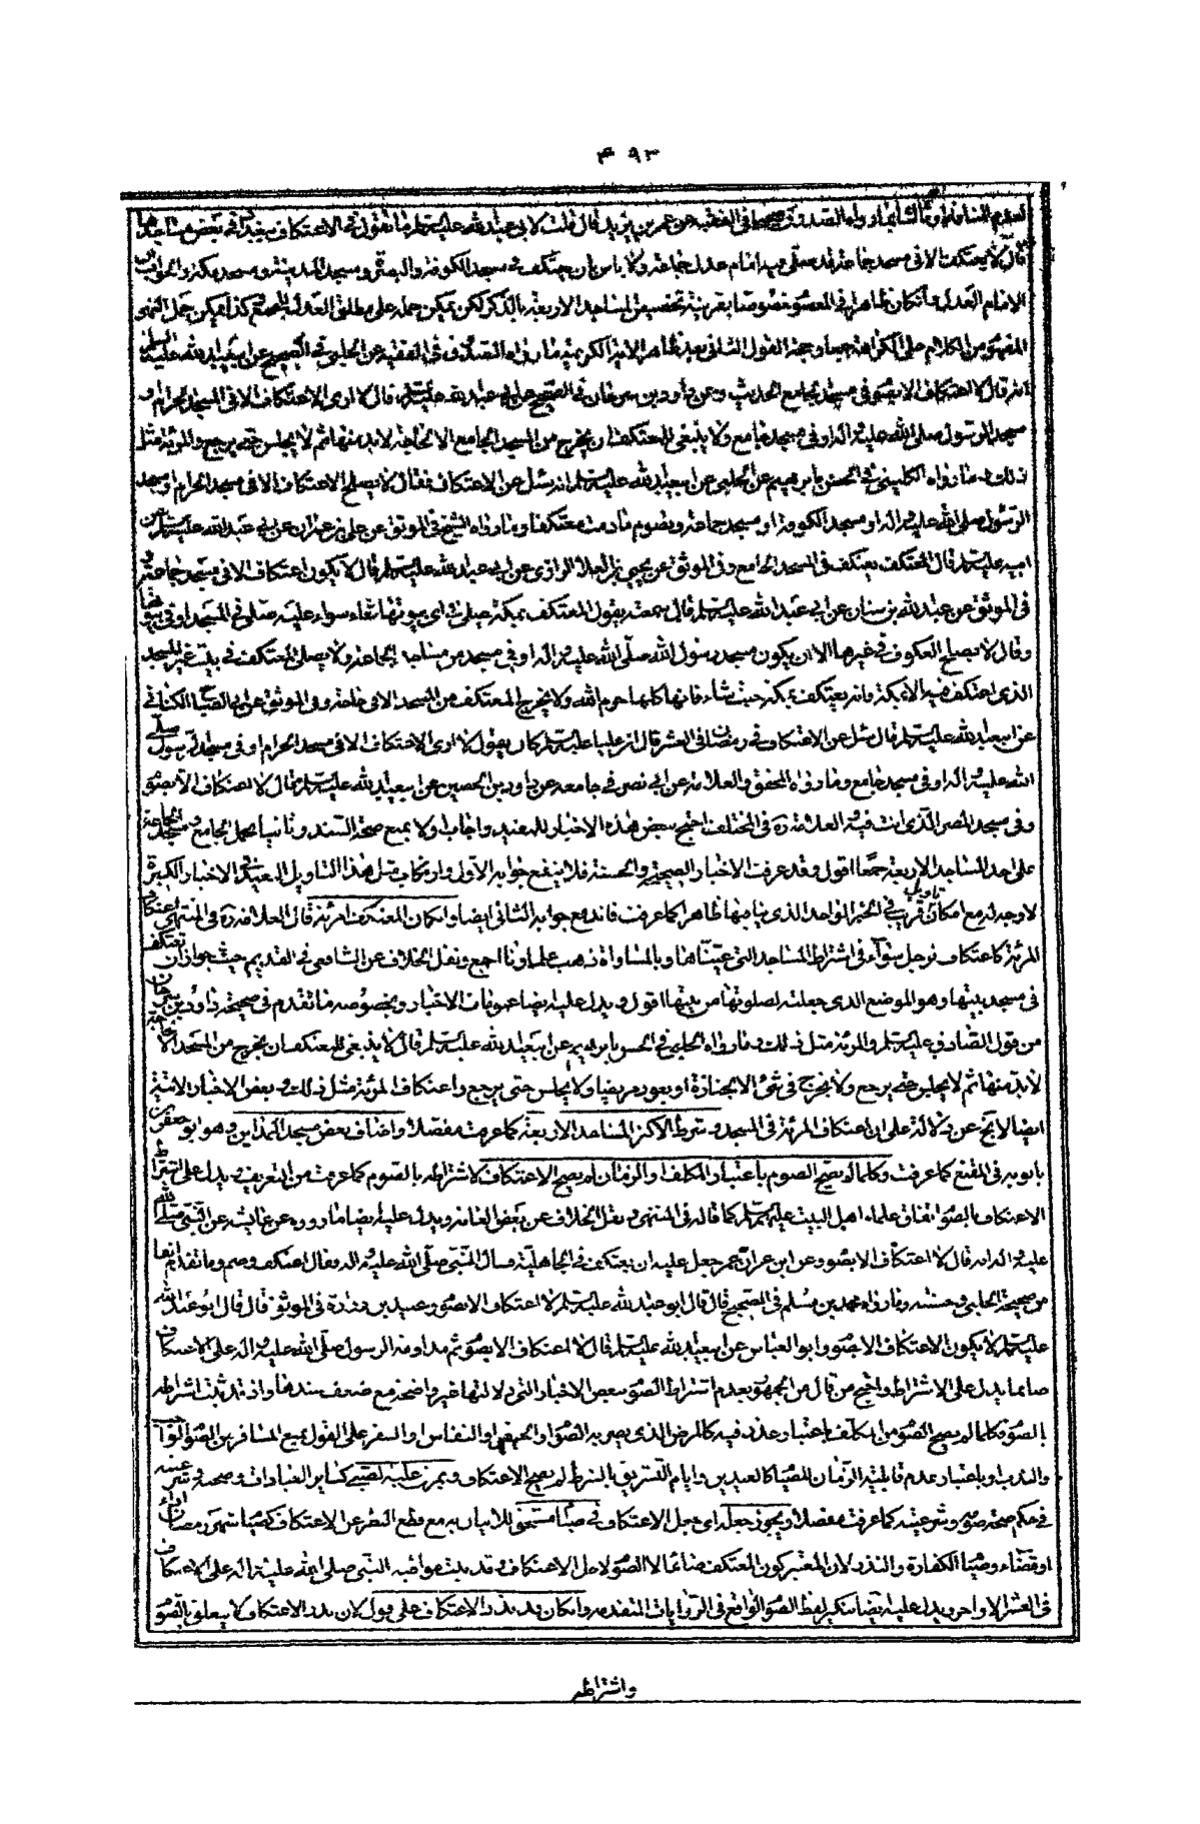 ٤٩٣
قال لا يعتكف الا في مسجد جماعة قد صلى فيه امام عدل جماعة ولا باس بان يعتكف في مسجد الكوفة والبصرة ومسجد المدينة ومسجد مكة والجواب
الامام العدل وان كان ظاهرا في المعصوم خصوصا بقرينة تخصيص المساجد الاربعة بالذكر لكن يمكن حمله على مطلق العدل
المفهوم من الكلام على الكراهة جمعا وحجة القول الثاني بعد ظاهر الاية الكريمة ما رواه الصدوق في الفقيه عن الحلبي في الصحيح عن ابيعبد الله عليه السلم
انه قال لا اعتكاف الا بصوم في مسجد الجامع الحديث وعن داود بن سرحان في الصحيح عن ابي عبد الله عليه السلم قال لا ارى الاعتكاف الا في المسجد الحرام و
مسجد الرسول صلى الله عليه واله او في مسجد جامع ولا ينبغي للمعتكف ان يخرج من المسجد الجامع الا لحاجة لا بد منها ثم لا يجلس حتى يرجع والمرئة مثل
ذلك وما رواه الكليني في الحسن بابرهيم عن الحلبي عن ابيعبد الله عليه السلم انه سئل عن الاعتكاف فقال لا يصلح الاعتكاف الا في مسجد الحرام او مسجد
الرسول صلى الله عليه واله او مسجد الكوفة او مسجد جماعة وتصوم ما دمت معتكفا وما رواه الشيخ في الموثق عن علي بن عمران عن ابي عبد الله عليه السلم عن
ابيه عليه السلم قال المعتكف يعتكف في المسجد الجامع وفي الموثق عن يحيى بن العلا الرازي عن ابي عبد الله عليه السلم قال لا يكون اعتكاف الا في مسجد جماعة و
في الموثق عن عبد الله بن سنان عن ابي عبد الله عليه السلم قال سمعته يقول المعتكف بمكة يصلي في اي بيوتها شاء سواء عليه صلى في المسجد او في بيوتها
وقال لا يصلح العكوف في غيرها الا ان يكون مسجد رسول الله صلى الله عليه واله او في مسجد من مساجد الجماعة ولا يصلي المعتكف في بيت غير المسجد
الذي اعتكف فيه الا بمكة فانه يعتكف بمكة حيث شاء فانها كلها حرم الله ولا يخرج المعتكف من المسجد الا في حاجة وفي الموثق عن ابي الصباح الكناني
عن ابيعبد الله عليه السلم قال سئل عن الاعتكاف في رمضان في العشر قال ان عليا عليه السلم كان يقول لا ارى الاعتكاف الا في مسجد الحرام او في مسجد الرسول صلى
الله عليه واله او في مسجد جامع وما رواه المحقق والعلامة عن ابي نصر في جامعه عن داود بن الحصين عن ابيعبد الله عليه السلم قال لا اعتكاف الا بصوم
وفي مسجد المصر الذي انت فيه العلامة ره في المختلف احتج ببعض هذه الاخبار للمفيد واجاب اولا بمنع صحة السند وثانيا بحمل الجامع ومسجد الجماعة
على احد المساجد الاربعة جمعا اقول وقد عرفت الاخبار الصحيحة والحسنة فلا ينفع جوابه الاول وارتكاب مثل هذا التاويل البعيد في الاخبار الكثيرة
لا وجه له مع امكان تاويل قريب في الخبر الواحد الذي ينافيها ظاهرا كما عرفت فاندفع جوابه الثاني ايضا وان كان المعتكف امرئة قال العلامة ره في المنتهى اعتكاف
المرئة كاعتكاف الرجل سواء في اشتراط المساجد التي عيناها وبالمساواة ذهب علماؤنا اجمع ونقل الخلاف عن الشافعي في القديم حيث جواز ان تعتكف
في مسجد بيتها وهو الموضع الذي جعلته لصلوتها من بيتها اقول ويدل عليه ايضا عمومات الاخبار وبخصوصه ما تقدم في صحيحة داود بن سرحان
من قول الصادق عليه السلم والمرئة مثل ذلك وما رواه الحلبي في الحسن بابرهيم عن ابيعبد الله عليه السلم قال لا ينبغي للمعتكف ان يخرج من المسجد الا لحاجة
لا بد منها ثم لا يجلس حتى يرجع ولا يخرج في شئ الا لجنازة او يعود مريضا ولا يجلس حتى يرجع واعتكاف المرئة مثل ذلك وبعض الاخبار الاتية
ايضا لا يخ عن دلالة على ان اعتكاف المرئة في المسجد وشرط الاكثر المساجد الاربعة كما عرفت مفصلا واضاف بعض مسجد المداين وهو ابو جعفر بن
بابويه في المقنع كما عرفت وكلما لم يصح الصوم باعتبار المكلف او الزمان لم يصح الاعتكاف لاشتراطه بالصوم كما عرفت من التعريف ويدل على اشتراط
الاعتكاف بالصوم اتفاق علماء اهل البيت عليهم السلم كما قاله في المنتهى ونقل الخلاف عن بعض العامة ويدل عليه ايضا ما رووه عن عائشة عن النبي صلى الله
عليه واله انه قال لا اعتكاف الا بصوم وعن ابن عمر ان عمر جعل عليه ان يعتكف في الجاهلية فسال النبي صلى الله عليه واله فقال اعتكف وصم وما تقدم انفا
من صحيحة الحلبي وحسنته وما رواه محمد بن مسلم في الصحيح قال قال ابو عبد الله عليه السلم لا اعتكاف الا بصوم وعبيد بن زرارة في الموثق قال قال ابو عبد الله
عليه السلم لا يكون الاعتكاف الا بصوم وابو العباس عن ابيعبد الله عليه السلم قال لا اعتكاف الا بصوم ثم مداومة الرسول صلى الله عليه واله على الاعتكاف
صائما يدل على الاشتراط واحتج من قال من الجمهور بعدم اشتراط الصوم ببعض الاخبار التي دلالتها غير واضحة مع ضعف سندها واذ قد ثبت اشتراطه
بالصوم فكلما لم يصح الصوم من المكلف باعتبار عذر فيه كالمرض الذي يضر به الصوم او الحيض او النفاس او السفر على القول بمنع المسافر من الصوم الواجب
والندب او باعتبار عدم قابلية الزمان للصيام كالعيدين وايام التشريق بالشرط لم يصح الاعتكاف
في حكم صحة صومه وشرعيته كما عرفت مفصلا ويجوز جعله اي جعل الاعتكاف في صيام مستحق للاتيان به مع قطع النظر عن الاعتكاف كصيام شهر رمضان اداء
او قضاء وصيام الكفارة والنذر لان المعتبر كون المعتكف صائما لا الصوم لاجل الاعتكاف وقد ثبت مواظبة النبي صلى الله عليه واله على الاعتكاف
في العشر الاواخر ويدل عليه ايضا تنكير لفظ الصوم الواقع في الروايات المتقدمة وان كان قد نذر الاعتكاف على قول لان نذر الاعتكاف لا يتعلق بالصوم
واشتراطه